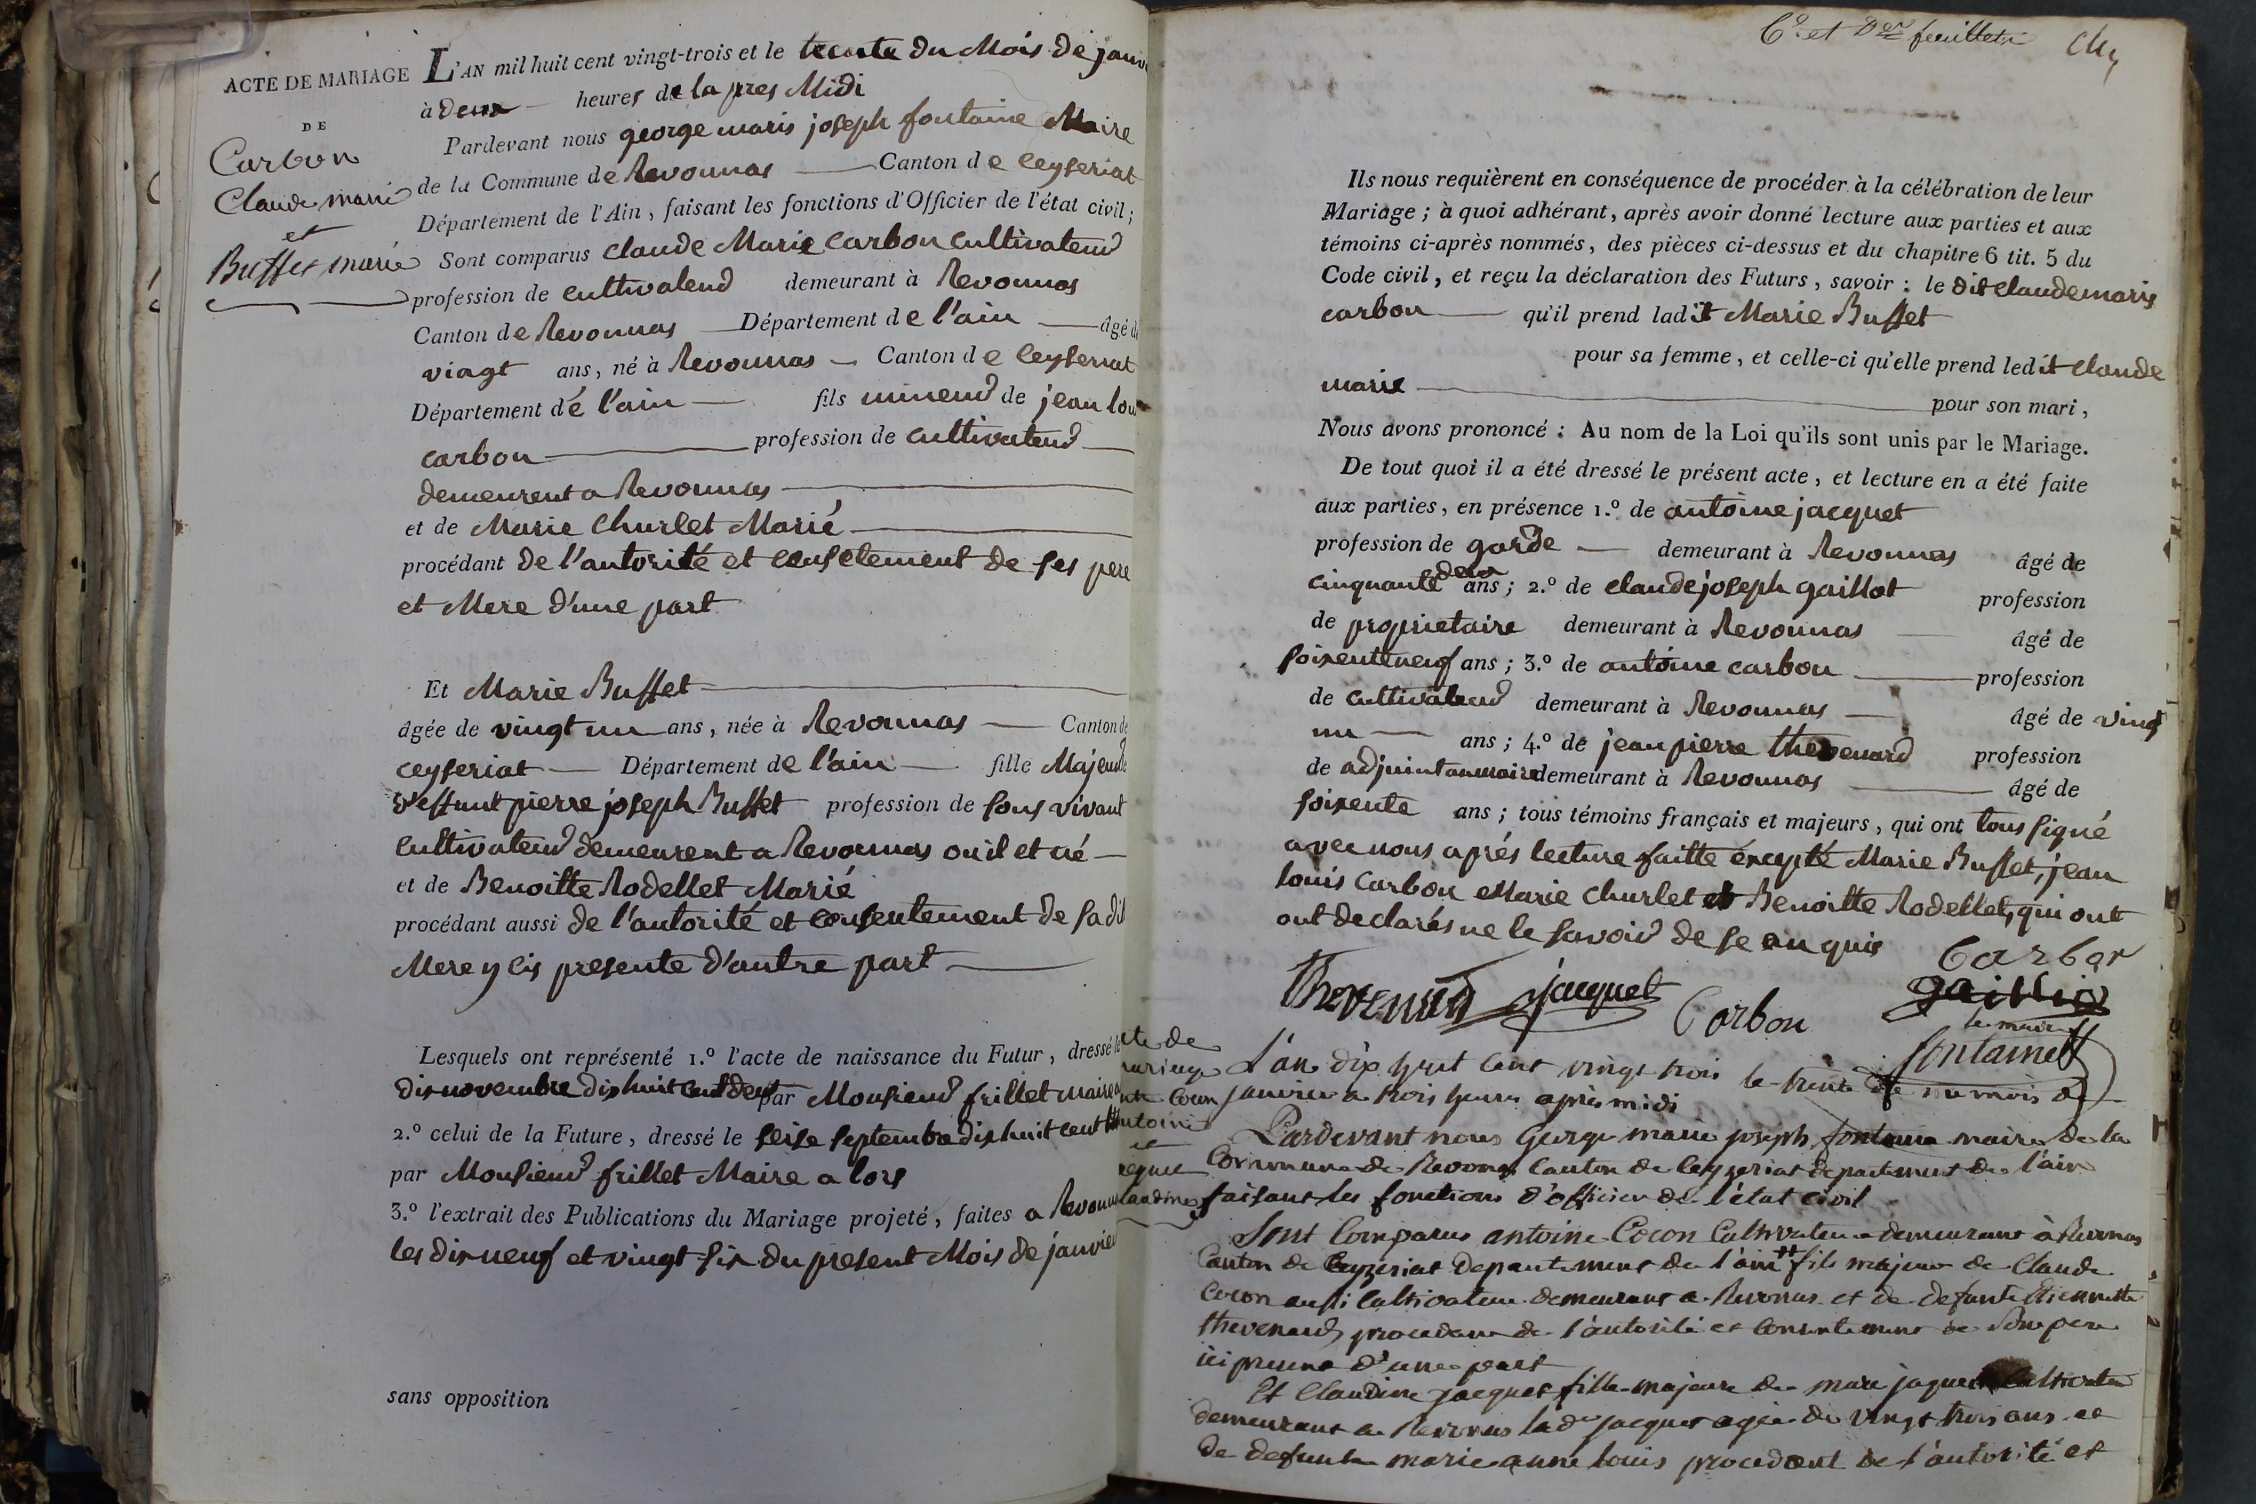 ACTE DE MARIAGE
DE
Carbon
Claude marie
et
Buffet marie
L'AN mil huit cent vingt-trois et le trente du Mois de janv
à deux heures de la pres Midi
Pardevant nous george maris joseph fontaine Maire
de la Commune de Revonnas Canton de Ceyseriat
Département de l'Ain, faisant les fonctions d'Officier de l'état civil;
Sont comparus Claude Marie Carbon Cultivateur
profession de cultivateur demeurant à Revonnas
Canton de Revonnas Département de l'ain âgé d
viagt ans, né à Revonnas Canton de Ceyseriat
Département dé l'ain fils mineur de jean lou
carbon profession de cultivateur
demeurent a Revonnas
et de Marie Churlet Marié
procédant de l'autorité et consetement de ses pere
et Mere d'une part
Et Marie Buffet
âgée de vingt un ans, née à Revonnas Canton de
ceyseriat Département de l'ain fille Majeur
d'effunt pierre joseph Buffet profession de sons vivant
Cultivateur demeurent a Revonnas ou il et né
et de Benoitte Rodellet Marié
procédant aussi de l'autorité et consentement de sa dit
Mere y cis presente d'autre part
Lesquels ont représenté 1.º l'acte de naissance du Futur, dressé le
dix novembre dix huit cent deux par Monsieur frillet maire a
2.º celui de la Future, dressé le seise septembre dix huit cent
par Monsieur frillet Maire a lors
3.º l'extrait des Publications du Mariage projeté, faites a Revonn
les dix neuf et vingt six du present Mois de janvier
sans opposition
6.º et Der feuillet
Ils nous requièrent en conséquence de procéder à la célébration de leur
Mariage; à quoi adhérant, après avoir donné lecture aux parties et aux
témoins ci-après nommés, des pièces ci-dessus et du chapitre 6 tit. 5 du
Code civil, et reçu la déclaration des Futurs, savoir: le dit claude maris
carbon qu'il prend ladit Marie Buffet
pour sa femme, et celle-ci qu'elle prend ledit claude
marie pour son mari,
Nous avons prononcé: Au nom de la Loi qu'ils sont unis par le Mariage.
De tout quoi il a été dressé le présent acte, et lecture en a été faite
aux parties, en présence 1.º de antoine jacquet
profession de garde demeurant à Revonnas âgé de
cinquante deux ans; 2.º de claude joseph gaillot profession
de proprietaire demeurant à Revonnas âgé de
soixente neuf ans; 3.º de antoine carbon profession
de cultivateur demeurant à Revonnas âgé de vingt
un ans; 4.º de jean pierre thevenard profession
de adjuint au maire demeurant à Revonnas âgé de
soixente ans; tous témoins français et majeurs, qui ont tous signé
avec nous aprés lecture faitte éxcepté Marie Buffet, jean
louis Carbon Marie Churlet et Benoitte Rodellet, qui ont
ont declarés ne le savoir de se en quis
Carbon
Thevenard Jacquet Carbon gaillot
le maire
fontaine
cte de
mariage
Cocon
antoine
et
Claudine
L'an dix huit cent vingt trois le trente du mois de
janvier a trois heures après midi
Pardevant nous George marie joseph fontaine maire de la
Commune de Revonas Canton de Ceyzeriat departement de l'ain
faisant les fonctions d'officier de l'état civil
Sont Comparus antoine Cocon Cultivateur demeurant à Revonas
Canton de Ceyzeriat Departement de l'ain fils majeur de Claude
Cocon aussi Cultivateur demeurant a Revonas et de defunte Etiennette
thevenard procedant de l'autorité et Consentement de Son pere
ici present d'une part
Et Claudine jacquet fille majeure de marie jaquet Cultivateur
demeurant a Revonas lade jacquet agée de vingt trois ans et
de defunte marie anne louis procedant de l'autorité et